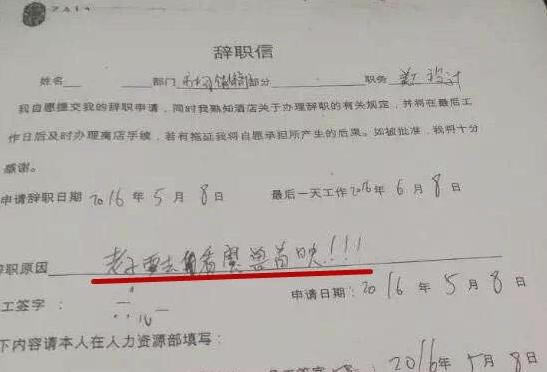 辞职信
姓名 部门 市场传销部分 职务 美工设计
我自愿提交我的辞职申请，同时我熟知酒店关于办理辞职的有关规定，并将在最后工
作日后及时办理离店手续，若有拖延我将自愿承担所产生的后果。如被批准，我将十分
感谢。
申请辞职日期 2016 年 5 月 8 日 最后一天工作 2016 年 6 月 8 日
辞职原因 老子要去看魔兽首映!!!
工签字： 申请日期：2016 年 5 月 8 日
下内容请本人在人力资源部填写：
2016 年 5 月 8 日